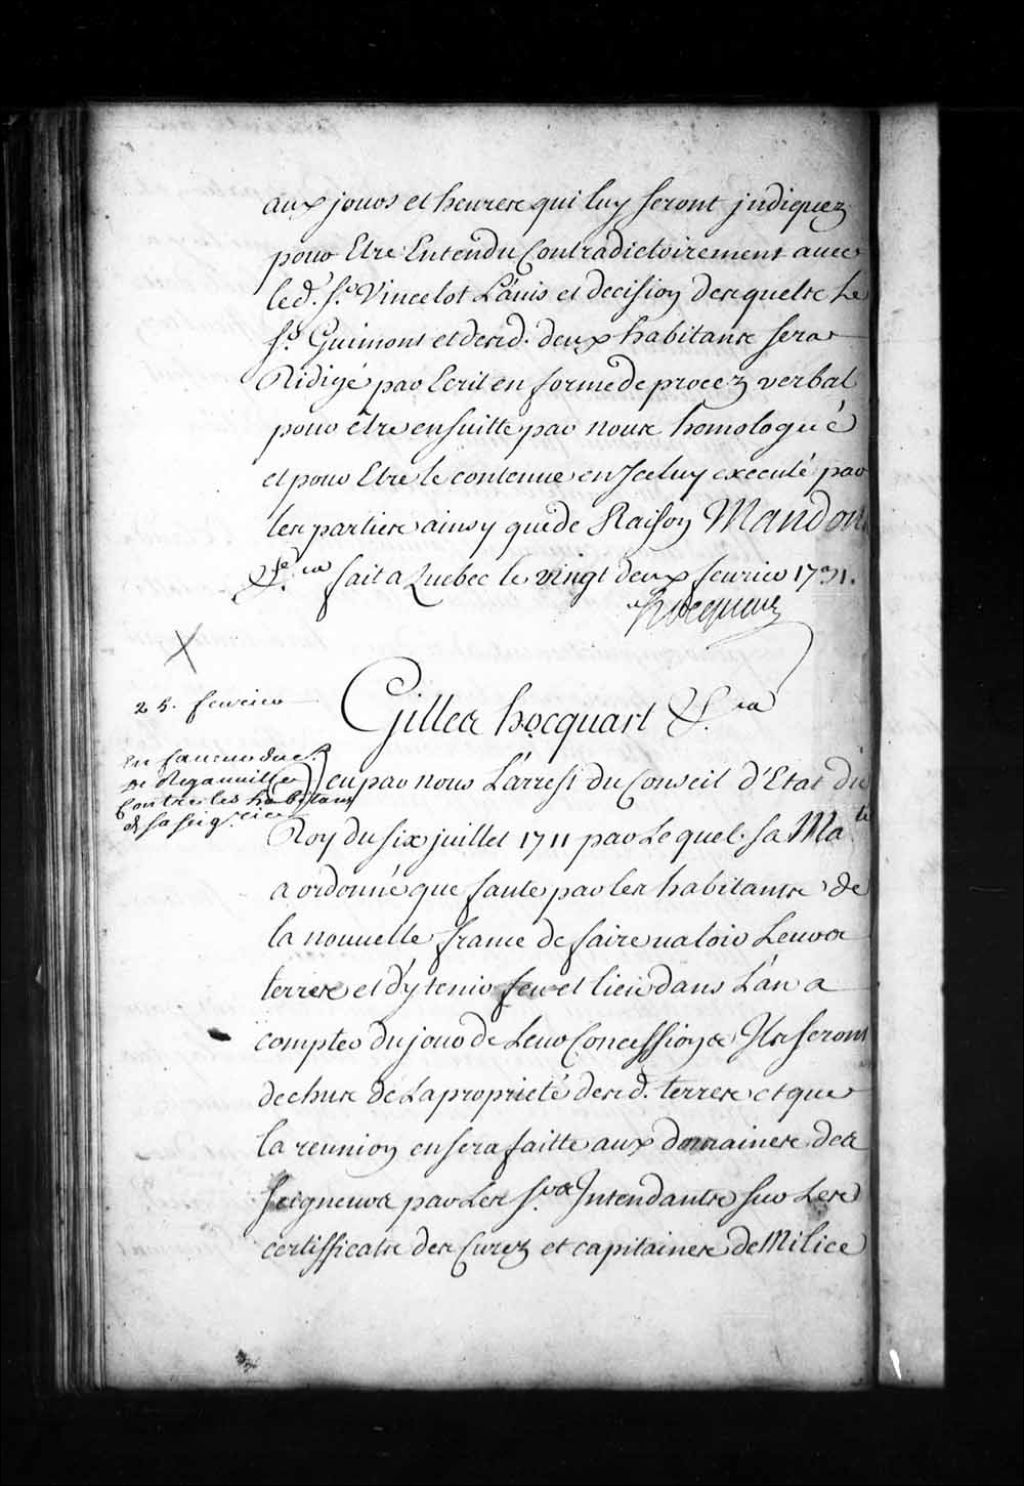 aux jours et heures qui luy seront jndiquez
pour Etre Entendu Contradictoirement avec
led. Sr. Vincelot L'auis et decision desquels le
Sr. Guimont et desd. deux habitants sera
Rédigé par Ecrit en forme de procez verbal
pour être ensuitte par nous homologué
et pour Etre le contenu en Jceluy executé par
les parties ainsy que de Raison Mandons
&c.ra fait a Quebec le vingt deux feurier 1731.
Hocquart
25. feurier
Gilles hocquart &c.ra
en faueur du Sr.
De Rigauuille
Contre les habitans
de sa seigrie
Veu par nous L'arrest du Conseil d'Etat du
Roy du six juillet 1711 par Lequel sa Mate.
a ordonné que faute par les habitants de
la nouuelle france de faire ualoir Leurs
terres et d'y tenir feu et lieu dans L'an a
compter du jour de Leur Concessions Jls seront
dechus de La propriété desd. terres et que
la reunion en sera faitte aux domaines des
seigneurs par Les Srs. Jntendants sur Les
certifficats des Curez et capitaines de Milice